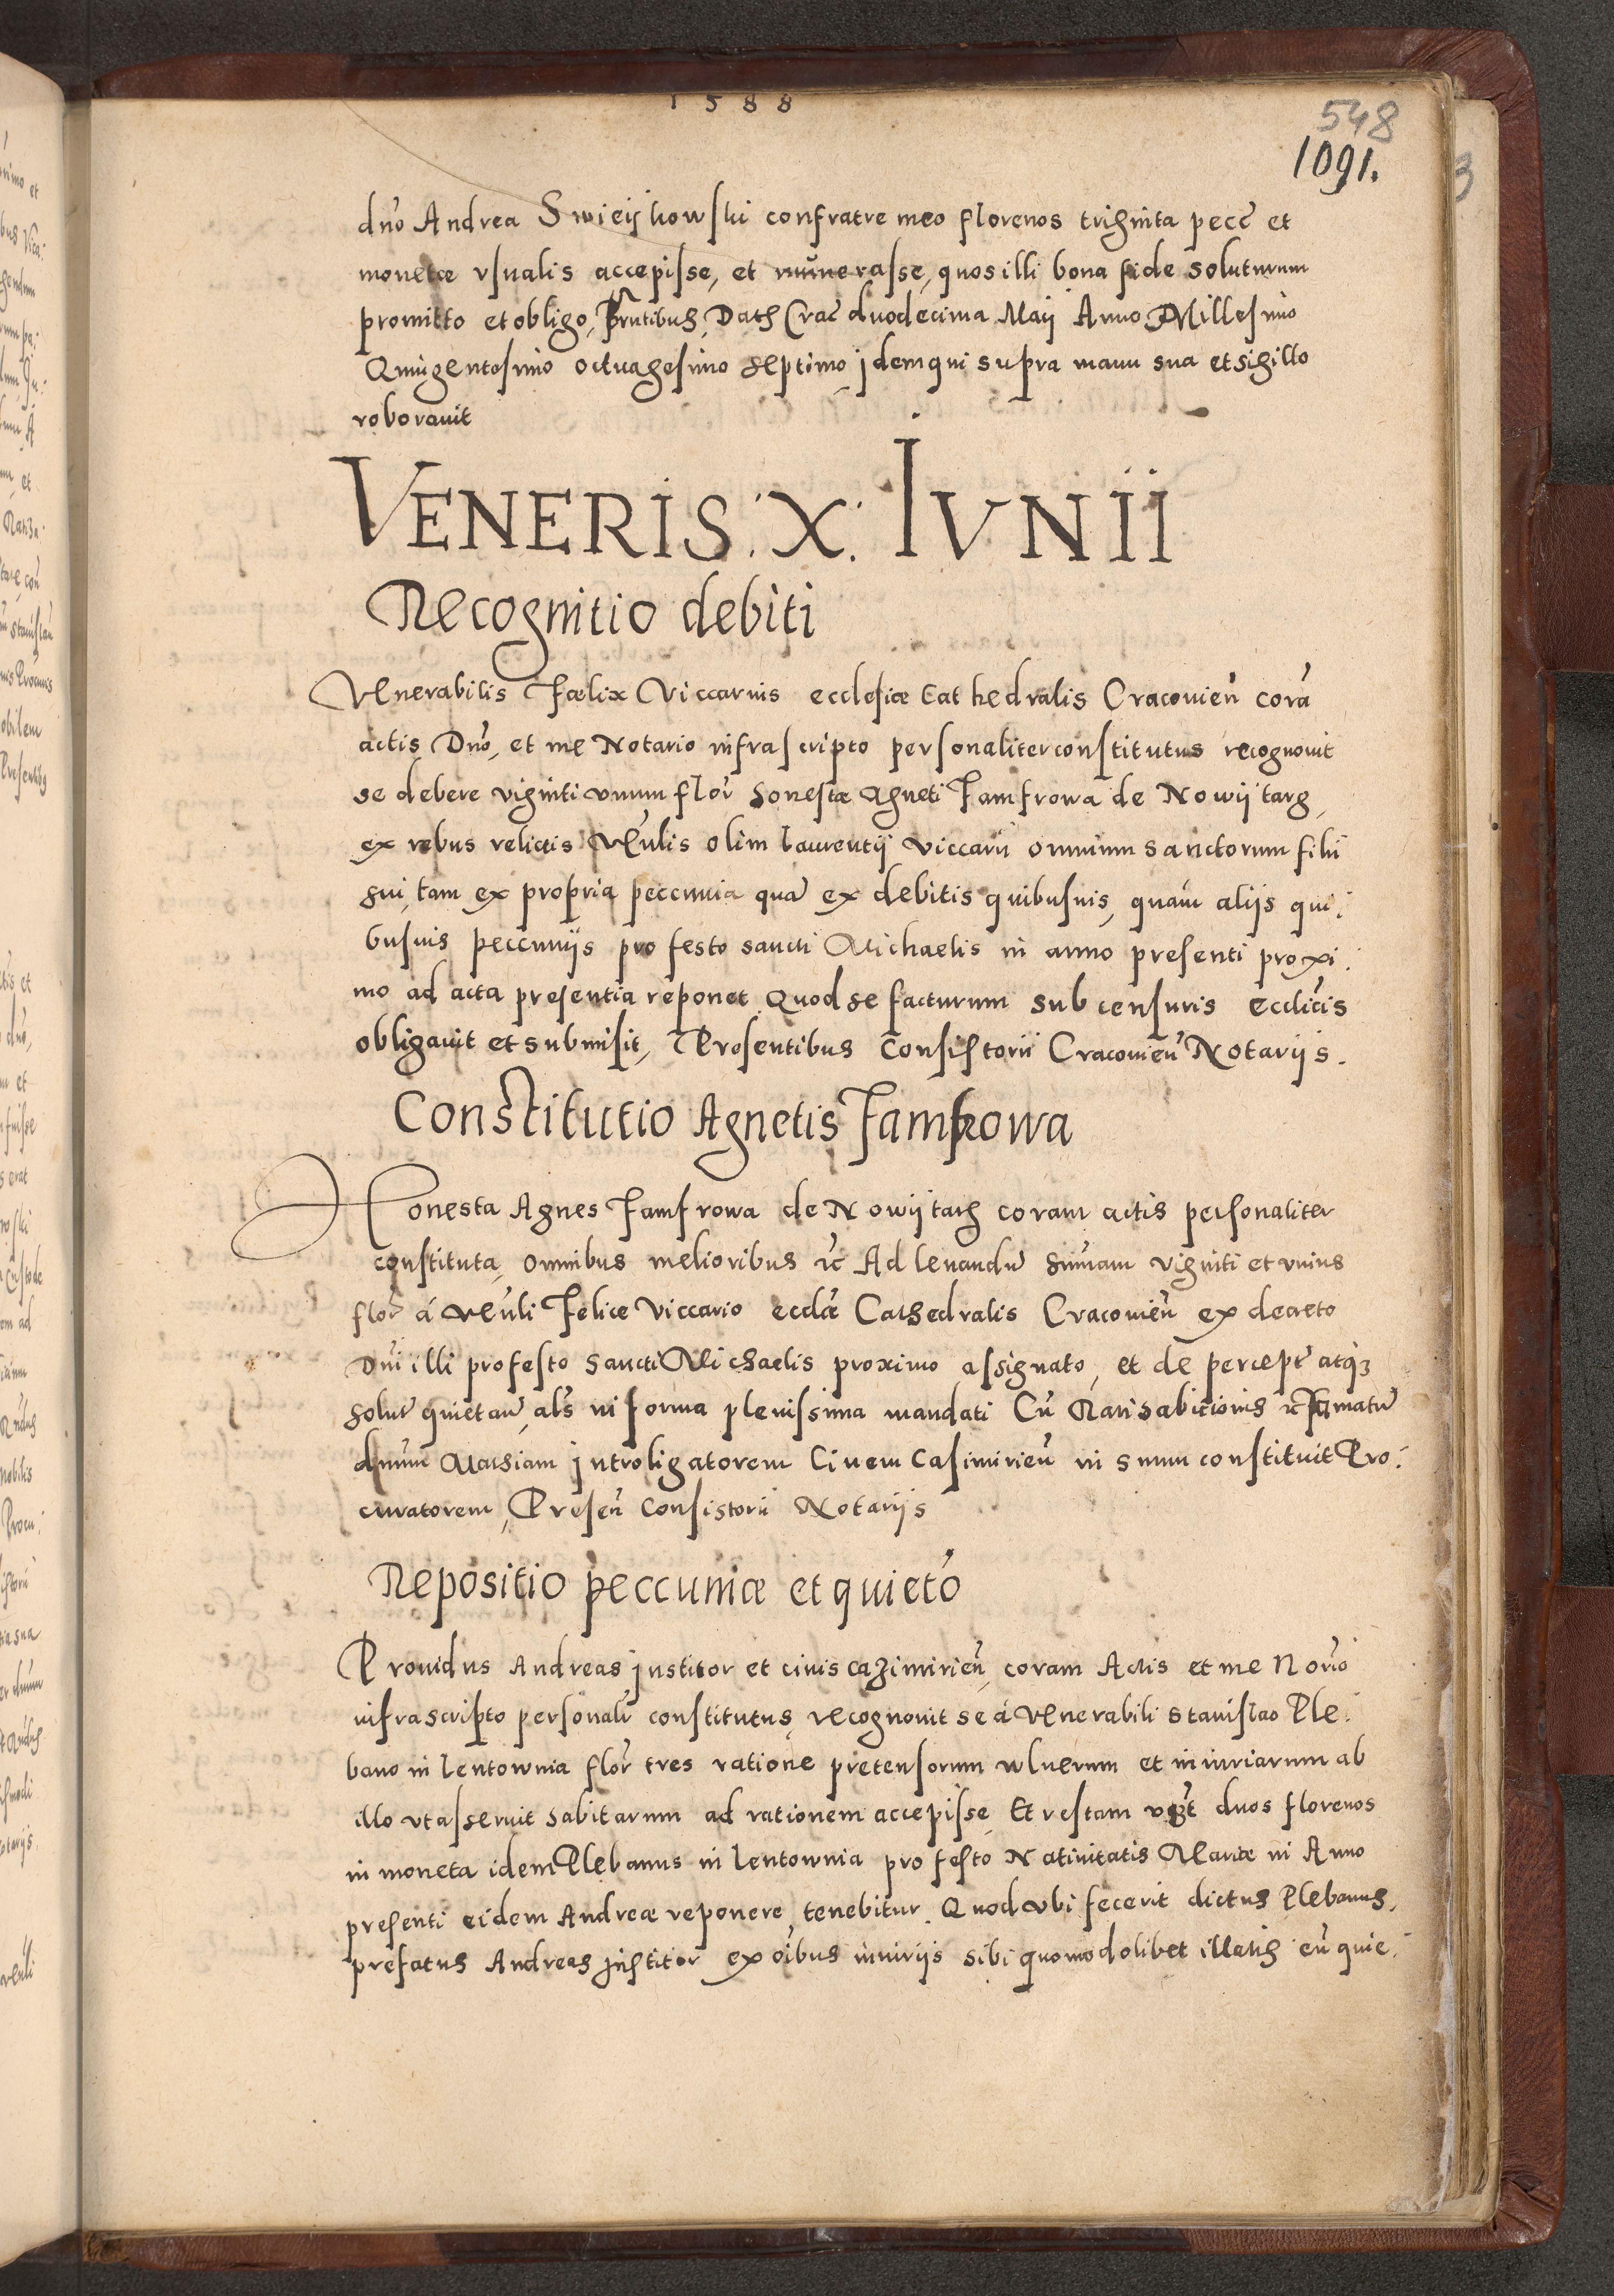 1588
548
1091.
dno Andrea Swieijkowski confratre meo florenos triginta pecc et
monetæ vsualis accepisse, et numerasse, quos illi bona fide soluturum
promitto et obligo, Prntibus, Datz Crac duodecima Maij Anno Millesimo
Quingentesimo octuagesimo septimo jdemqui supra manu sua et sigillo
roborauit
VENERIS. X. IVNII
Recognitio debiti
Venerabilis Fælix Viccarius ecclesiæ Cathedralis Cracouien corã
actis Dno, et me Notario infrascripto personaliter constitutus recognouit
se debere viginti vnum flor honestæ Agneti Jamfrowa de Nowij targ,
ex rebus relictis Venlis olim laurentij viccarii omnium sanctorum filii
sui, tam ex propria peccunia quã ex debitis quibusuis, quam aliijs qui.
busuis peccunijs pro festo sancti Michaelis in anno presenti proxi.
mo ad acta presentia reponet Quod se facturum sub censuris ecclicis
obligauit et submisit, Presentibus Consistorii Cracouien Notarijs.
Constitutio Agnetis Jamfrowa
Honesta Agnes Jamfrowa de Nowij targ coram actis personaliter
constituta, omnibus melioribus etc Ad leuandũ summam viginti et vnius
flor á Venli Felice Viccario ecclæ Cathedralis Cracouien ex decreto
Dni illi pro festo Sancti Michaelis proximo assignato, et de percept atq3
solut quietan, als in forma plenissima mandati Cũ Ratihabitionis etc
dnum Mathiam jntroligatorem Ciuem Casimirien in suum constituit Pro.
curatorem, Presen Consistorii Notarijs
Repositio peccuniæ et quieto
Prouidus Andreas jnstitor et ciuis cazimirien, coram Actis et me Norio
infrascripto personalr constitutus, recognouit se á Venerabili Stanislao Ple.
bano in lentownia flor tres ratione pretensorum vlnerum et iniuriarum ab
illo vt asseruit habitarum ad rationem accepisse, Et restam vzt duos florenos
in moneta idem Plebanus in lentownia pro festo Natiuitatis Mariæ in Anno
presenti eidem Andreæ reponere tenebitur. Quod vbi fecerit dictus Plebanus,
prefatus Andreas jnstitor ex oibus iniurijs sibi quomodolibet illatis eũ quie.